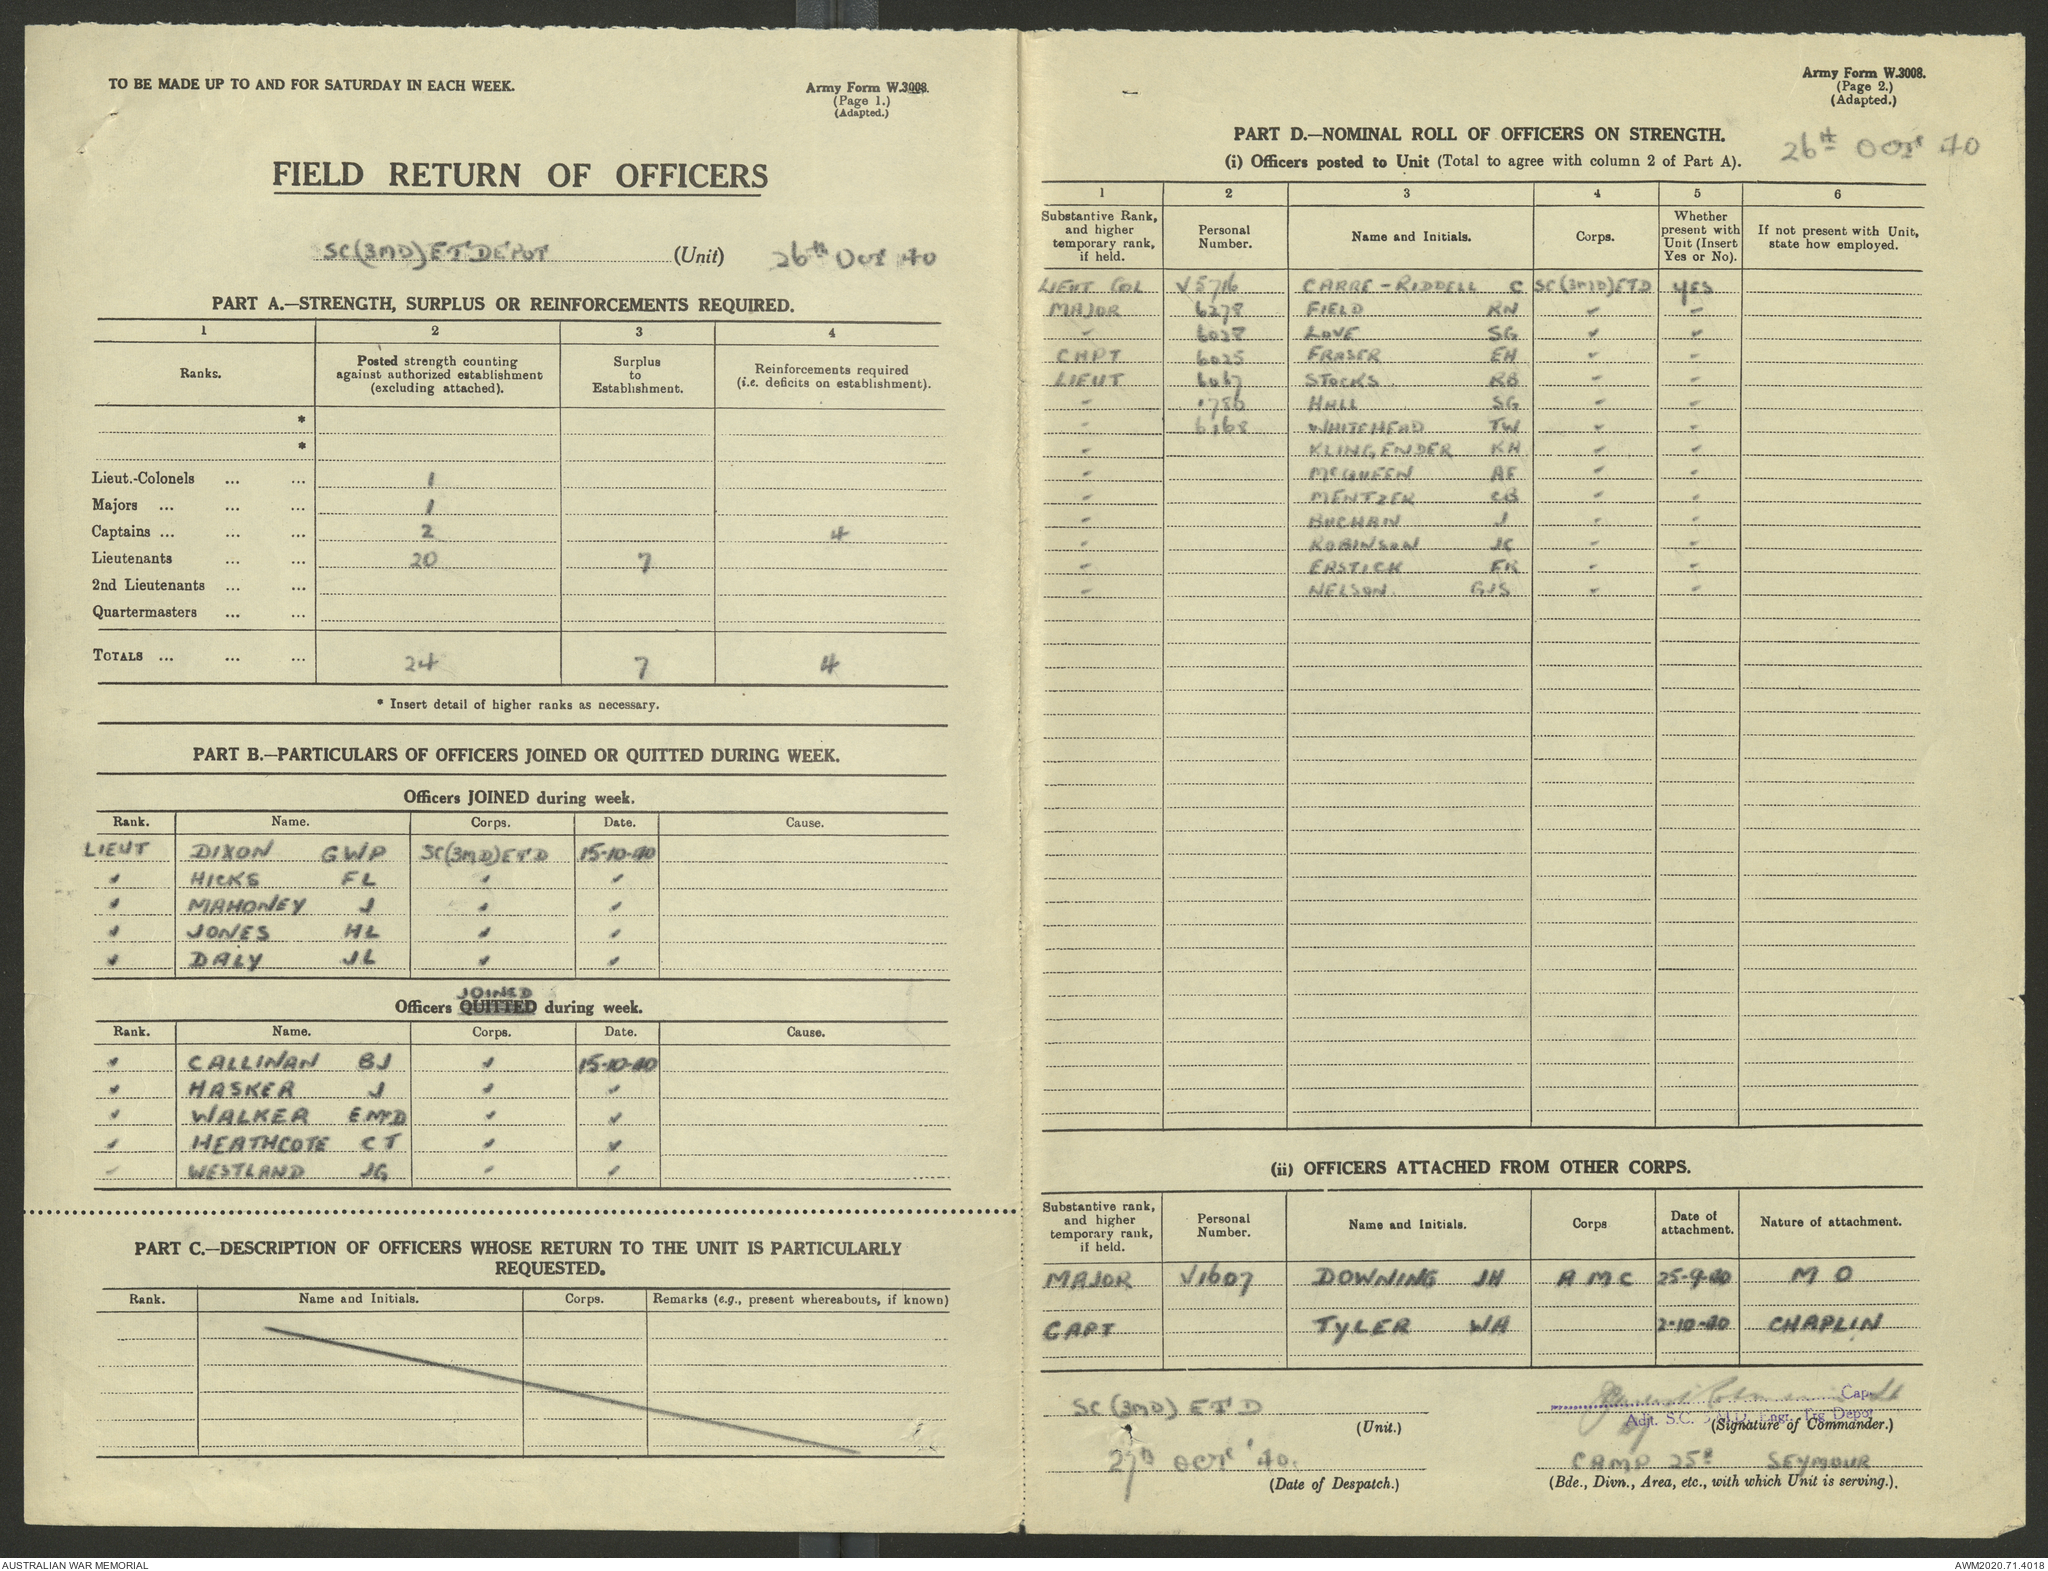 TO BE MADE UP TO AND FOR SATURDAY IN EACH WEEK.
Army Form W.3008.
(Page 1.)
(Adapted.)
FIELD RETURN OF OFFICERS
SC(3MD) ET DEPOT (Unit) 26th Oct 40
PART A.—STRENGTH, SURPLUS OR REINFORCEMENTS REQUIRED.
1 2 3 4
Ranks. Posted strength counting against authorized establishment (excluding attached). Surplus to Establishment. Reinforcements required (i.e. deficits on establishment).
*
*
Lieut.-Colonels ... ... 1
Majors ... ... ... 1
Captains ... ... ... 2 4
Lieutenants ... ... 20 7
2nd Lieutenants ... ...
Quartermasters ... ...
TOTALS ... ... ... 24 7 4
* Insert detail of higher ranks as necessary.
PART B.—PARTICULARS OF OFFICERS JOINED OR QUITTED DURING WEEK.
Officers JOINED during week.
Rank. Name. Corps. Date. Cause.
LIEUT DIXON GWP SC(3MD)ETD 15-10-40
" HICKS FL " "
" MAHONEY J " "
" JONES HL " "
" DALY JL " "
JOINED
Officers QUITTED during week.
Rank. Name. Corps. Date. Cause.
" CALLINAN BJ " 15-10-40
" HASKER J " "
" WALKER E McD " "
" HEATHCOTE CT " "
" WESTLAND JG " "
PART C.—DESCRIPTION OF OFFICERS WHOSE RETURN TO THE UNIT IS PARTICULARLY
REQUESTED.
Rank. Name and Initials. Corps. Remarks (e.g., present whereabouts, if known)
Army Form W.3008.
(Page 2.)
(Adapted.)
PART D.—NOMINAL ROLL OF OFFICERS ON STRENGTH.
26th OCT 40
(i) Officers posted to Unit (Total to agree with column 2 of Part A).
1 2 3 4 5 6
Substantive Rank, and higher temporary rank, if held. Personal Number. Name and Initials. Corps. Whether present with Unit (Insert Yes or No). If not present with Unit, state how employed.
LIEUT COL V5716 CARRE-RIDDELL C SC(3MD)ETD YES
MAJOR 6278 FIELD RN " "
" 6028 LOVE SG " "
CAPT 6025 FRASER EH " "
LIEUT 6067 STOCKS RB " "
" HALL SG " "
" 6168 WHITEHEAD TW " "
" KLINGENDER KH " "
" McQUEEN AF " "
" MENTZER CB " "
" BUCHAN J " "
" ROBINSON JC " "
" EASTICK FR " "
" NELSON GJS " "
(ii) OFFICERS ATTACHED FROM OTHER CORPS.
Substantive rank, and higher temporary rank, if held. Personal Number. Name and Initials. Corps Date of attachment. Nature of attachment.
MAJOR V1607 DOWNING JH A M C 25-9-40 M O
CAPT TYLER WA 2-10-40 CHAPLIN
SC (3MD) ETD (Unit.)
Capt
Adjt. S.C. 3 M.D. Engr. Trg Depot
(Signature of Commander.)
27th OCT '40. (Date of Despatch.)
CAMP 25 SEYMOUR
(Bde., Divn., Area, etc., with which Unit is serving.).
AUSTRALIAN WAR MEMORIAL
AWM2020.71.4018